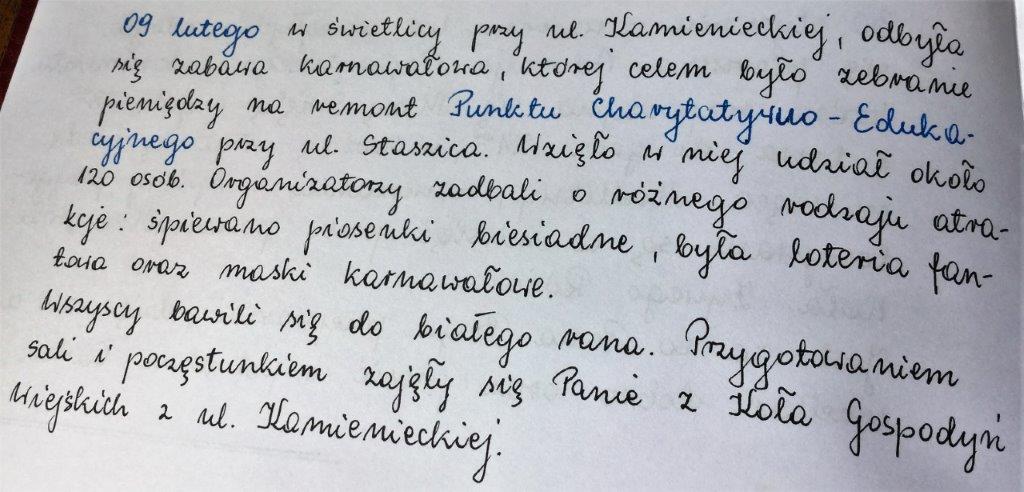 09 lutego w świetlicy przy ul. Kamienieckiej, odbyła
się zabawa karnawałowa, której celem było zebranie
pieniędzy na remont Punktu Charytatywno - Eduka-
cyjnego przy ul. Staszica. Wzięło w niej udział około
120 osób. Organizatorzy zadbali o różnego rodzaju atra-
kcje: śpiewano piosenki biesiadne, była loteria fan-
towa oraz maski karnawałowe.
Wszyscy bawili się do białego rana. Przygotowaniem
sali i poczęstunkiem zajęły się Panie z Koła Gospodyń
Wiejskich z ul. Kamienieckiej.